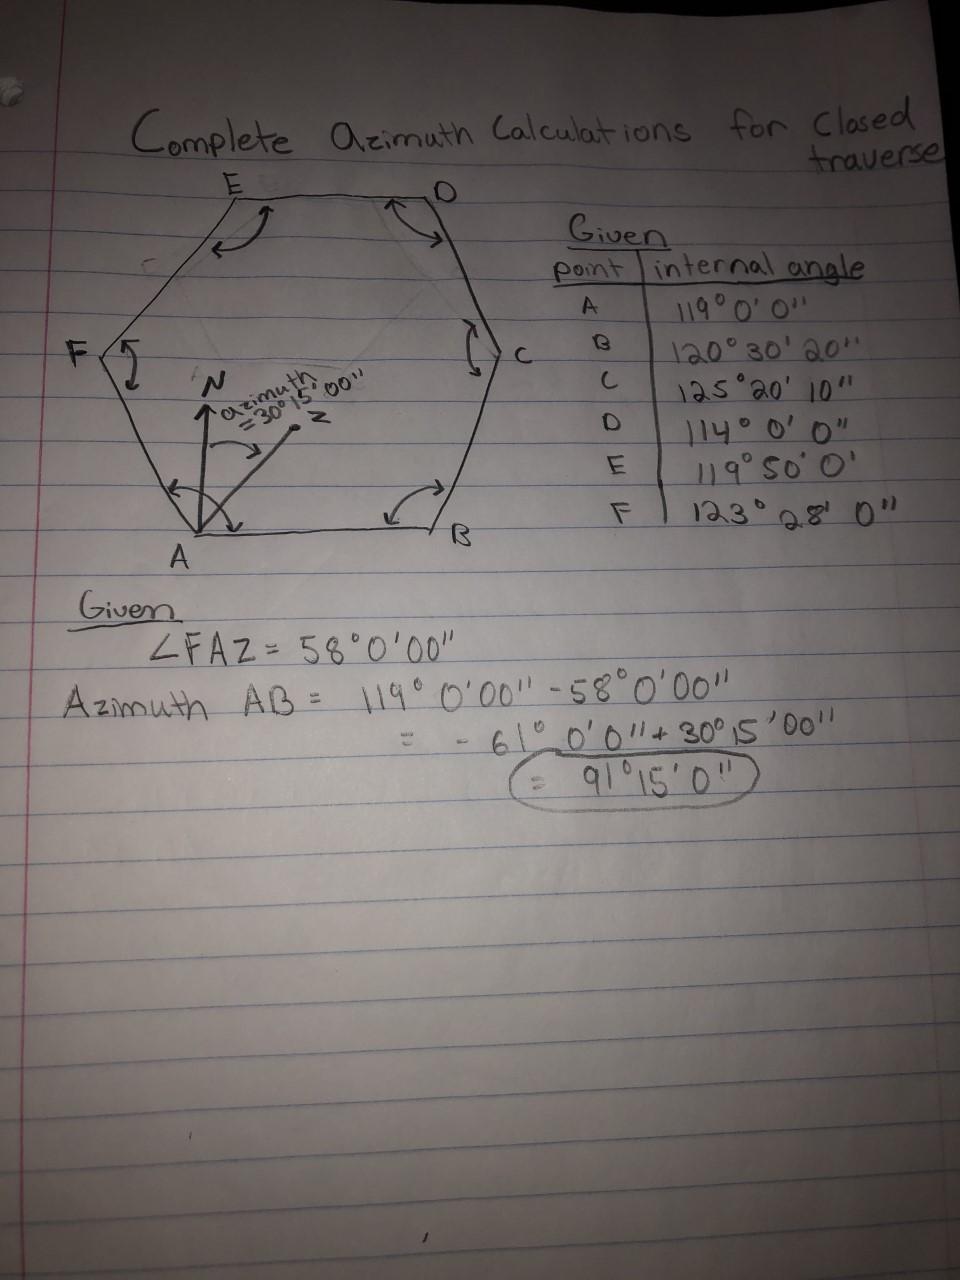 Complete Azimuth Calculations for Closed
traverse
E
D
F
C
N
azimuth
= 30° 15' 00"
Z
A
B
Given
point internal angle
A 119° 0' 0"
B 120° 30' 20"
C 125° 20' 10"
D 114° 0' 0"
E 119° 50' 0'
F 123° 28' 0"
Given
∠FAZ = 58° 0' 00"
Azimuth AB = 119° 0' 00" - 58° 0' 00"
= - 61° 0' 0" + 30° 15' 00"
= 91° 15' 0"